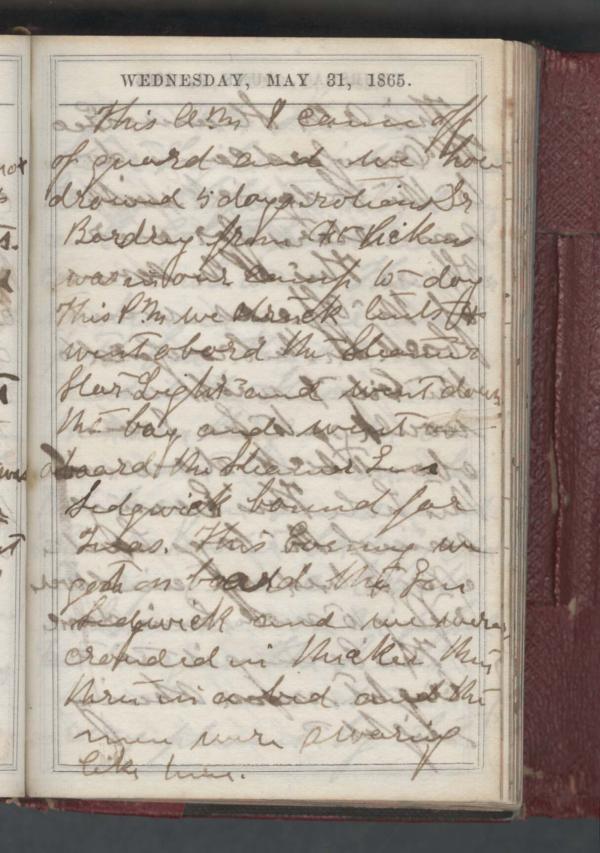 WEDNESDAY, MAY 31, 1865.
This A.M I came off
of guard and we
drawed 5 days rations Dr
from Ft Pickens
was in our camp to day
This P.M we struck tents &
went abord the Steamer
Star Light and went down
the bay and went
aboard the Steamer Gen
Sedgwick bound for
Texas. This Evening we
got on board the Gen
Sedgwick and we were
crowded in thicker than
three in a bed and the
men were swaring
like